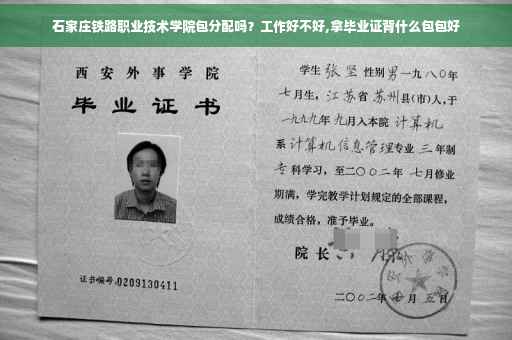 石家庄铁路职业技术学院包分配吗？工作好不好,拿毕业证背什么包包好
西安外事学院
毕业证书
证书编号:0209130411
学生 张坚 性别 男 一九八〇年
七月生，江苏省 苏州县(市)人，于
一九九九年 九月入本院 计算机
系 计算机信息管理专业 三 年制
专 科学习，至二〇〇二年 七月修业
期满，学完教学计划规定的全部课程，
成绩合格，准予毕业。
院长
二〇〇二年 月 五日